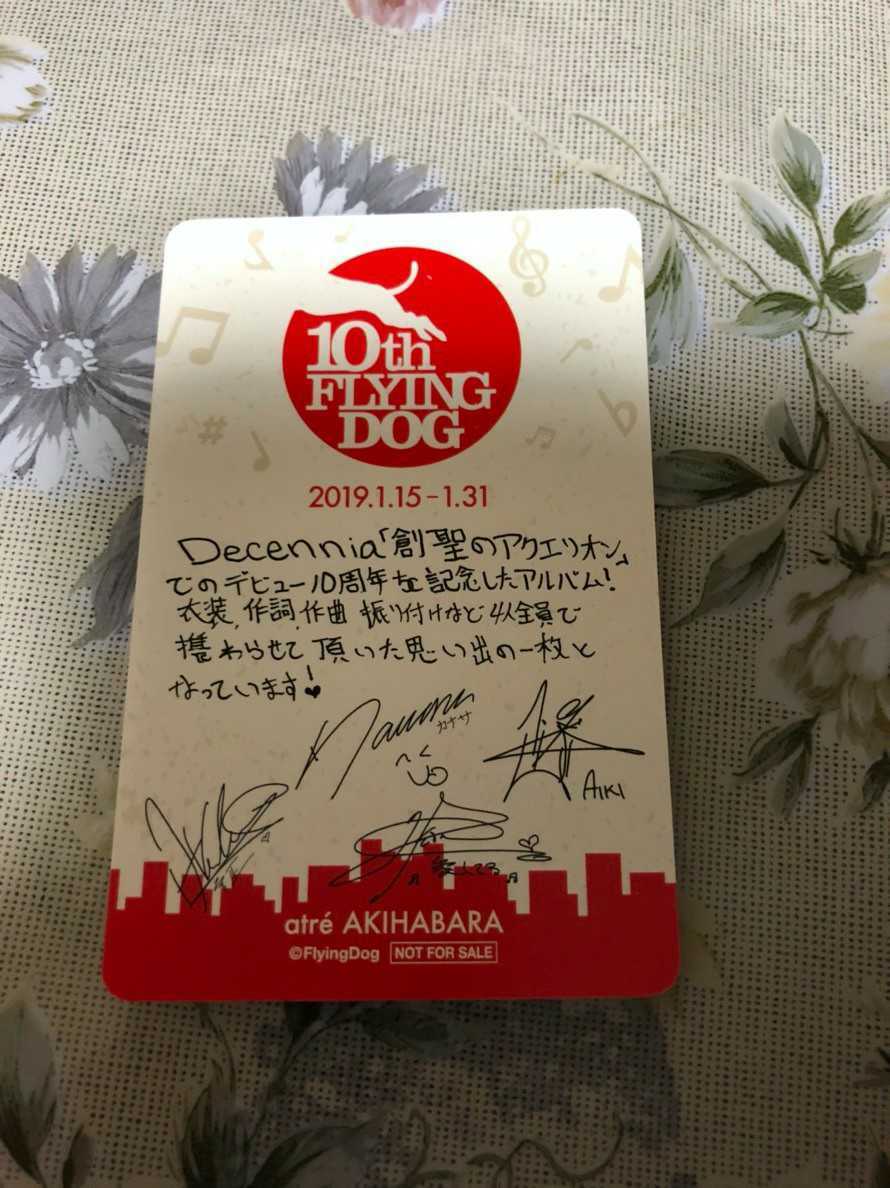 10th
FLYING
DOG
2019.1.15-1.31
Decennia「創聖のアクエリオン」
でのデビュー10周年を記念したアルバム!
衣装,作詞,作曲 振り付けなど4人全員で
携わらせて頂いた思い出の一枚と
なっています!
カナサ
AIKI
愛してる
atré AKIHABARA
©FlyingDog NOT FOR SALE